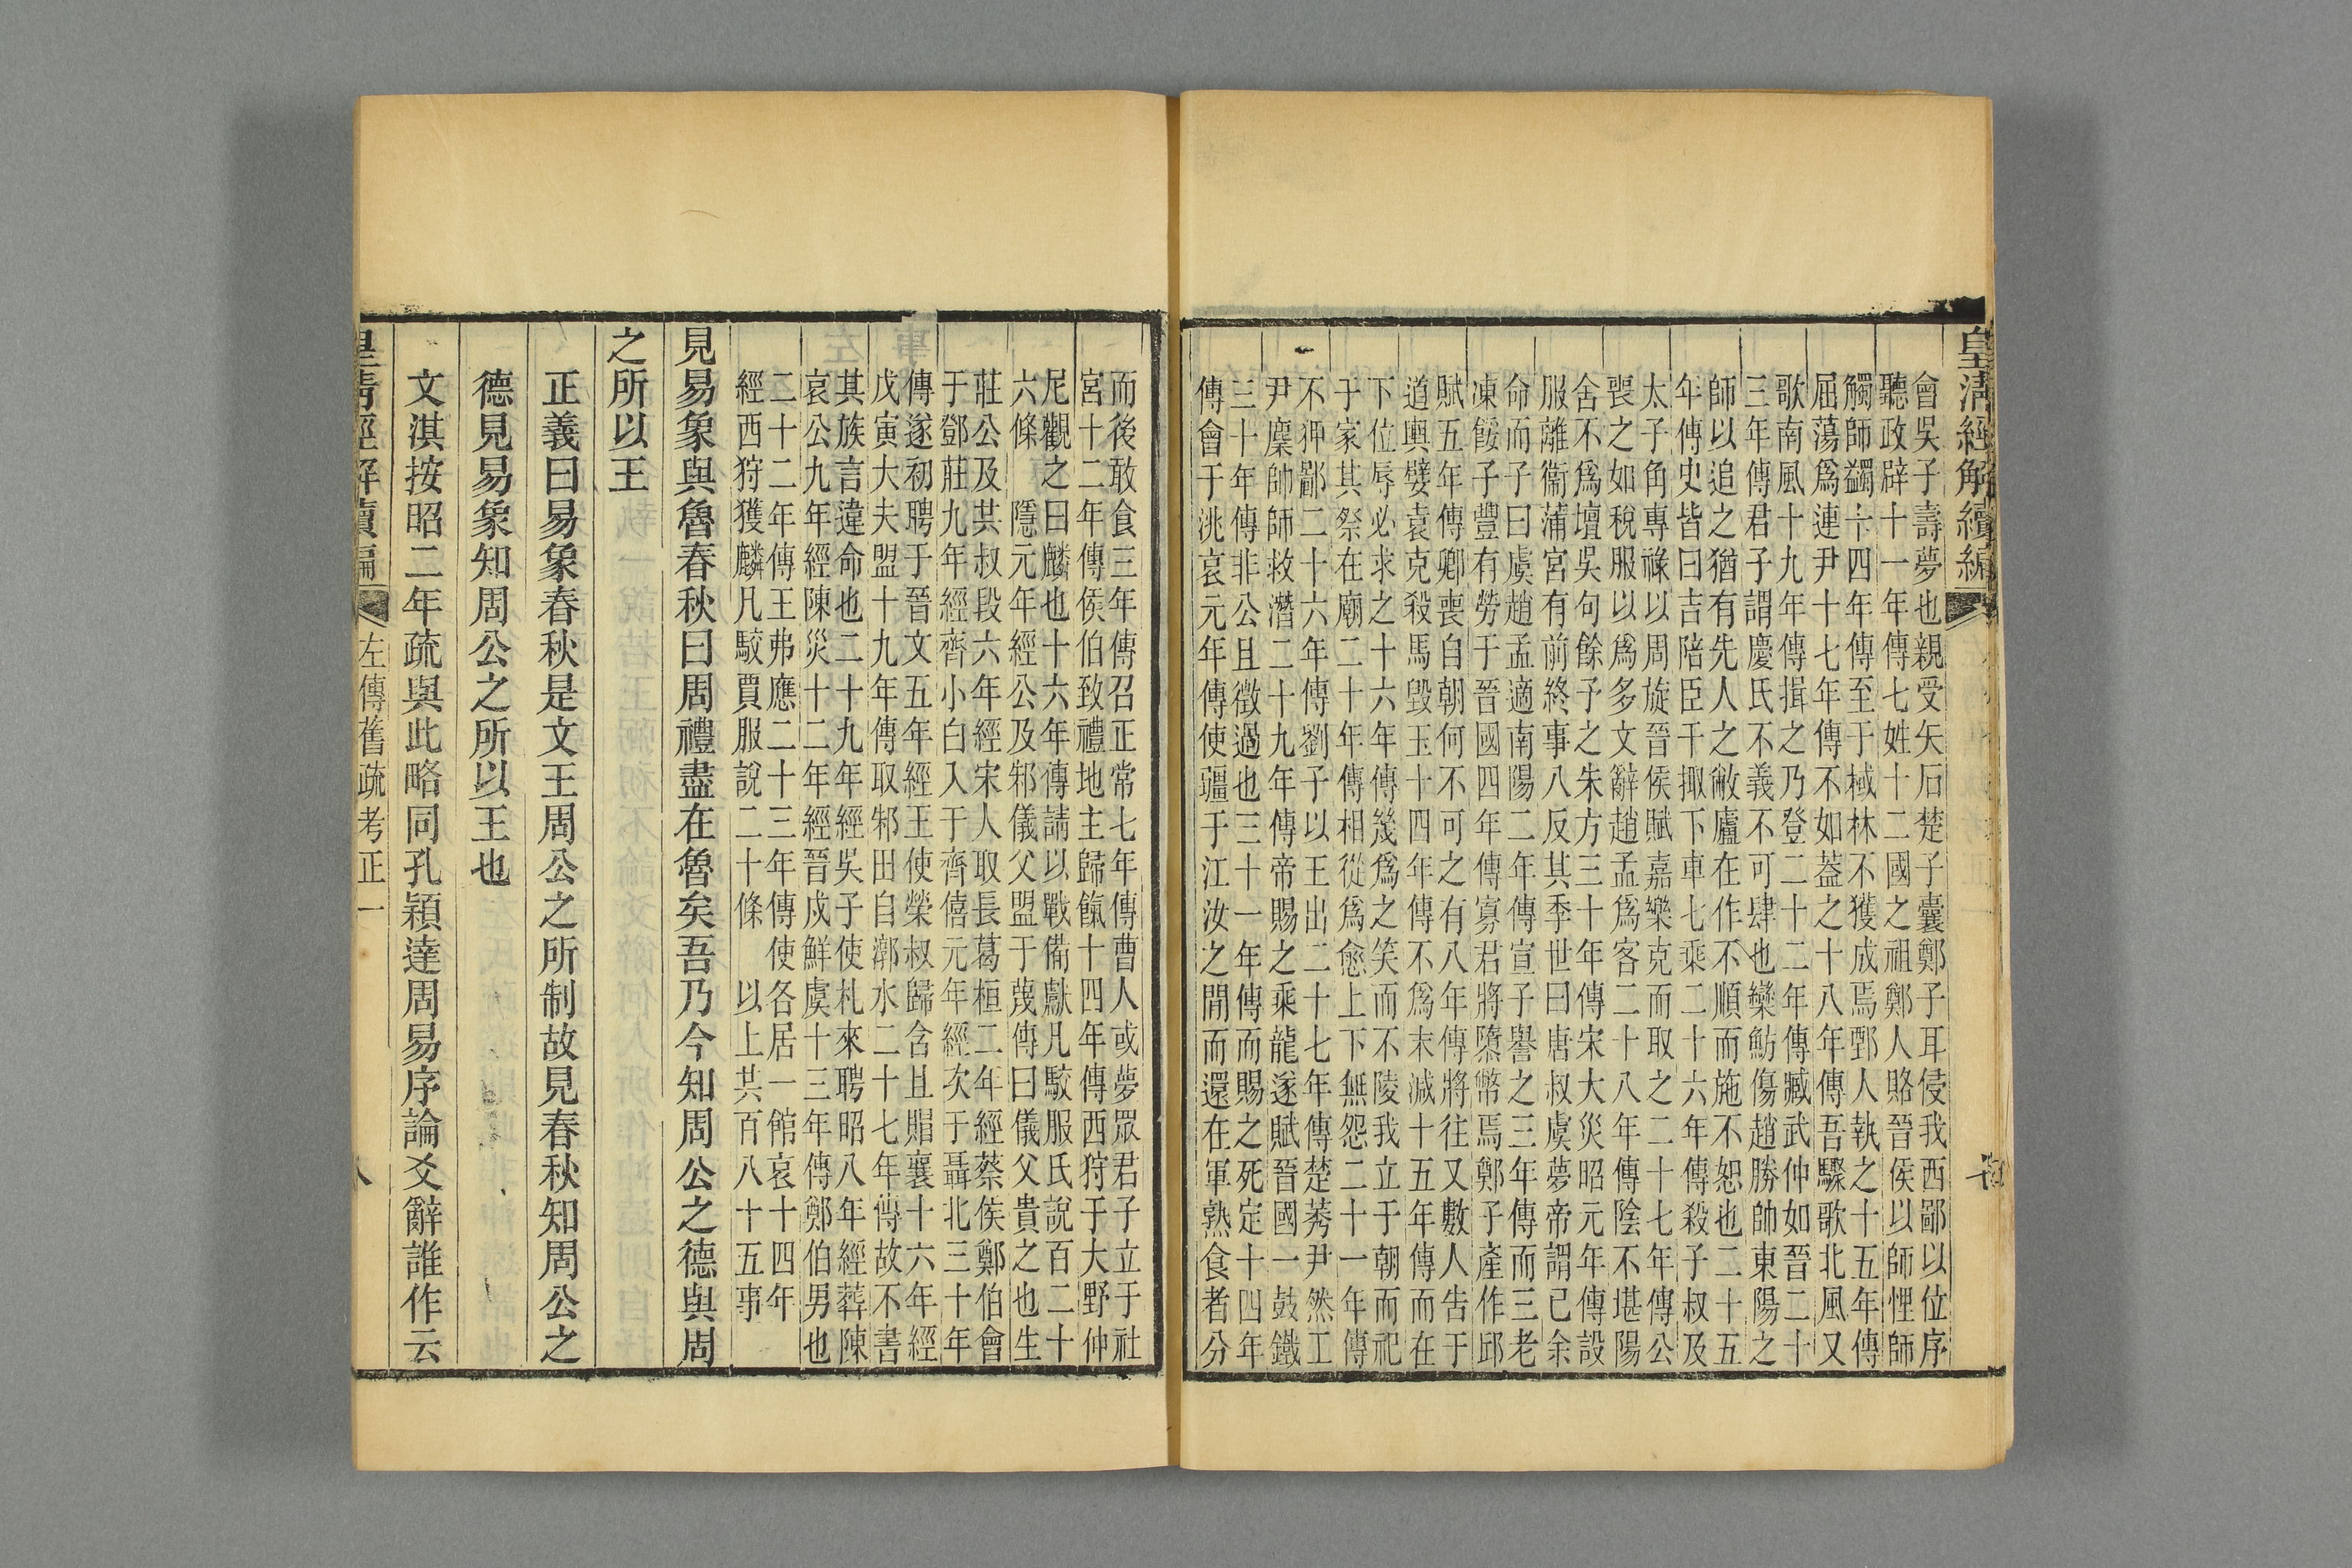 皇清經解續編
會吳子壽夢也親受矢石楚子囊鄭子耳侵我西鄙以位序
聽政辟十一年傳七姓十二國之祖鄭人賂晉侯以師悝師
觸師蠲十四年傳至于棫林不獲成焉鄄人執之十五年傳
屈蕩爲連尹十七年傳不如葢之十八年傳吾驟歌北風又
歌南風十九年傳揖之乃登二十二年傳臧武仲如晉二十
三年傳君子謂慶氏不義不可肆也欒魴傷趙勝帥東陽之
師以追之猶有先人之敝廬在作不順而施不恕也二十五
年傳史皆曰吉陪臣干掫下車七乘二十六年傳殺子叔及
太子角專祿以周旋晉侯賦嘉樂克而取之二十七年傳公
喪之如稅服以爲多文辭趙孟爲客二十八年傳陰不堪陽
舍不爲壇吳句餘予之朱方三十年傳宋大災昭元年傳設
服離衞蒲宮有前終事八反其季世曰唐叔虞夢帝謂己余
命而子曰虞趙孟適南陽二年傳宣子譽之三年傳而三老
凍餒子豐有勞于晉國四年傳寡君將墮幣焉鄭子產作邱
賦五年傳卿喪自朝何不可之有八年傳將往又數人告于
道輿嬖袁克殺馬毀玉十四年傳不爲末減十五年傳而在
下位辱必求之十六年傳幾爲之笑而不陵我立于朝而祀
于家其祭在廟二十年傳相從爲愈上下無怨二十一年傳
不狎鄙二十六年傳劉子以王出二十七年傳楚莠尹然工
尹麇帥師救潛二十九年傳帝賜之乘龍遂賦晉國一鼓鐵
三十年傳非公且徵過也三十一年傳而賜之死定十四年
傳會于洮哀元年傳使疆于江汝之閒而還在軍熟食者分
而後敢食三年傳召正常七年傳曹人或夢眾君子立于社
宮十二年傳侯伯致禮地主歸餼十四年傳西狩于大野仲
尼觀之曰麟也十六年傳請以戰備獻凡駮服氏說百二十
六條 隱元年經公及邾儀父盟于蔑傳曰儀父貴之也生
莊公及共叔段六年經宋人取長葛桓二年經蔡侯鄭伯會
于鄧莊九年經齊小白入于齊僖元年經次于聶北三十年
傳遂初聘于晉文五年經王使榮叔歸含且賵襄十六年經
戊寅大夫盟十九年傳取邾田自漷水二十七年傳故不書
其族言違命也二十九年經吳子使札來聘昭八年經葬陳
哀公九年經陳災十二年經晉戍鮮虞十三年傳鄭伯男也
二十二年傳王弗應二十三年傳使各居一館哀十四年
經西狩獲麟凡駮賈服說二十條 以上共百八十五事
見易象與魯春秋曰周禮盡在魯矣吾乃今知周公之德與周
之所以王
正義曰易象春秋是文王周公之所制故見春秋知周公之
德見易象知周公之所以王也
文淇按昭二年疏與此略同孔穎達周易序論爻辭誰作云
皇清經解續編 左傳舊疏考正一 八